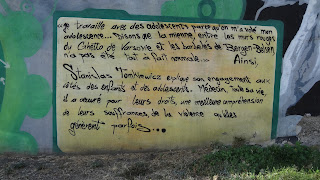 "je travaille avec des adolescents parce qu'on m'a volé mon
adolescence... Disons que la mienne entre les murs rouges
du Ghetto de Varsovie et les barbelés de Bergen-Belsen
n'a pas été tout à fait normale..." Ainsi,
Stanislas Tomkiewicz explique son engagement aux
côtés des enfants et des adolescents. Médecin, toute sa vie,
il a œuvré pour leurs droits, une meilleure compréhension
de leurs souffrances, de la violence qu'elles
génèrent parfois...